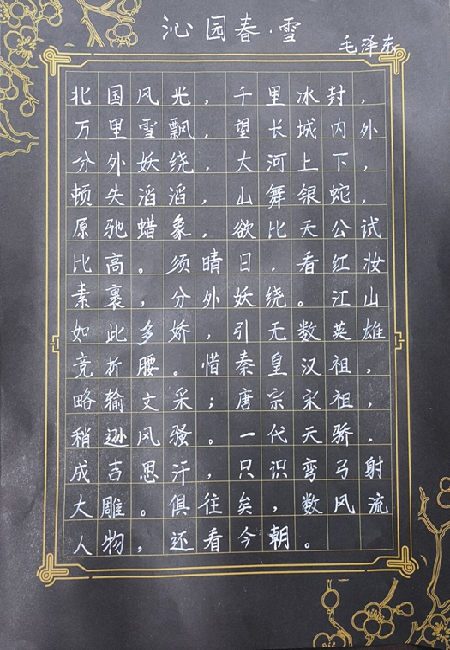 沁园春·雪
毛泽东
北国风光，千里冰封，
万里雪飘，望长城内外
分外妖绕，大河上下，
顿失滔滔，山舞银蛇，
原驰蜡象，欲比天公试
比高。须晴日，看红汝
素裹，分外妖绕。江山
如此多娇，引无数英雄
竞折腰。惜秦皇汉祖，
略输文采；唐宗宋祖，
稍逊风骚。一代天骄．
成吉思汗，只识弯弓射
大雕。俱往矣，数风流
人物，还看今朝。